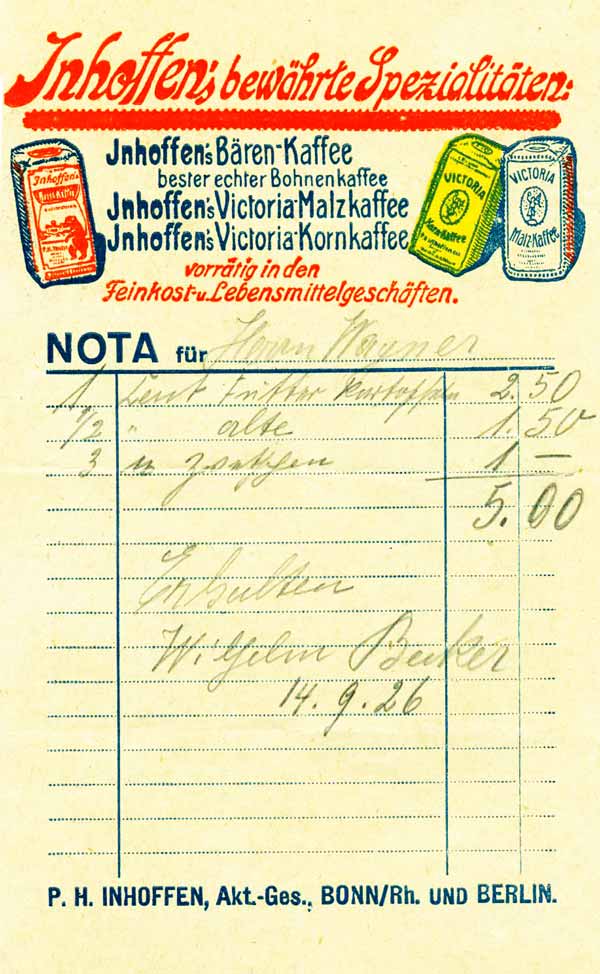 Inhoffen's bewährte Spezialitäten:
Jnhoffen's Bären-Kaffee
bester echter Bohnenkaffee
Jnhoffen's Victoria-Malzkaffee
Jnhoffen's Victoria-Kornkaffee
vorrätig in den
Feinkost- u. Lebensmittelgeschäften.
Jnhoffen's
Bären-Kaffee
VICTORIA
Korn-Kaffee
VICTORIA
Malz-Kaffee
NOTA für Herrn Wagner
1 Zent Futter Kartoffeln 2.50
1/2 " alte 1.50
3 " Zwetschen 1 —
5.00
Erhalten
Wilhelm Becker
14.9.26
P. H. INHOFFEN, Akt.-Ges., BONN/Rh. UND BERLIN.